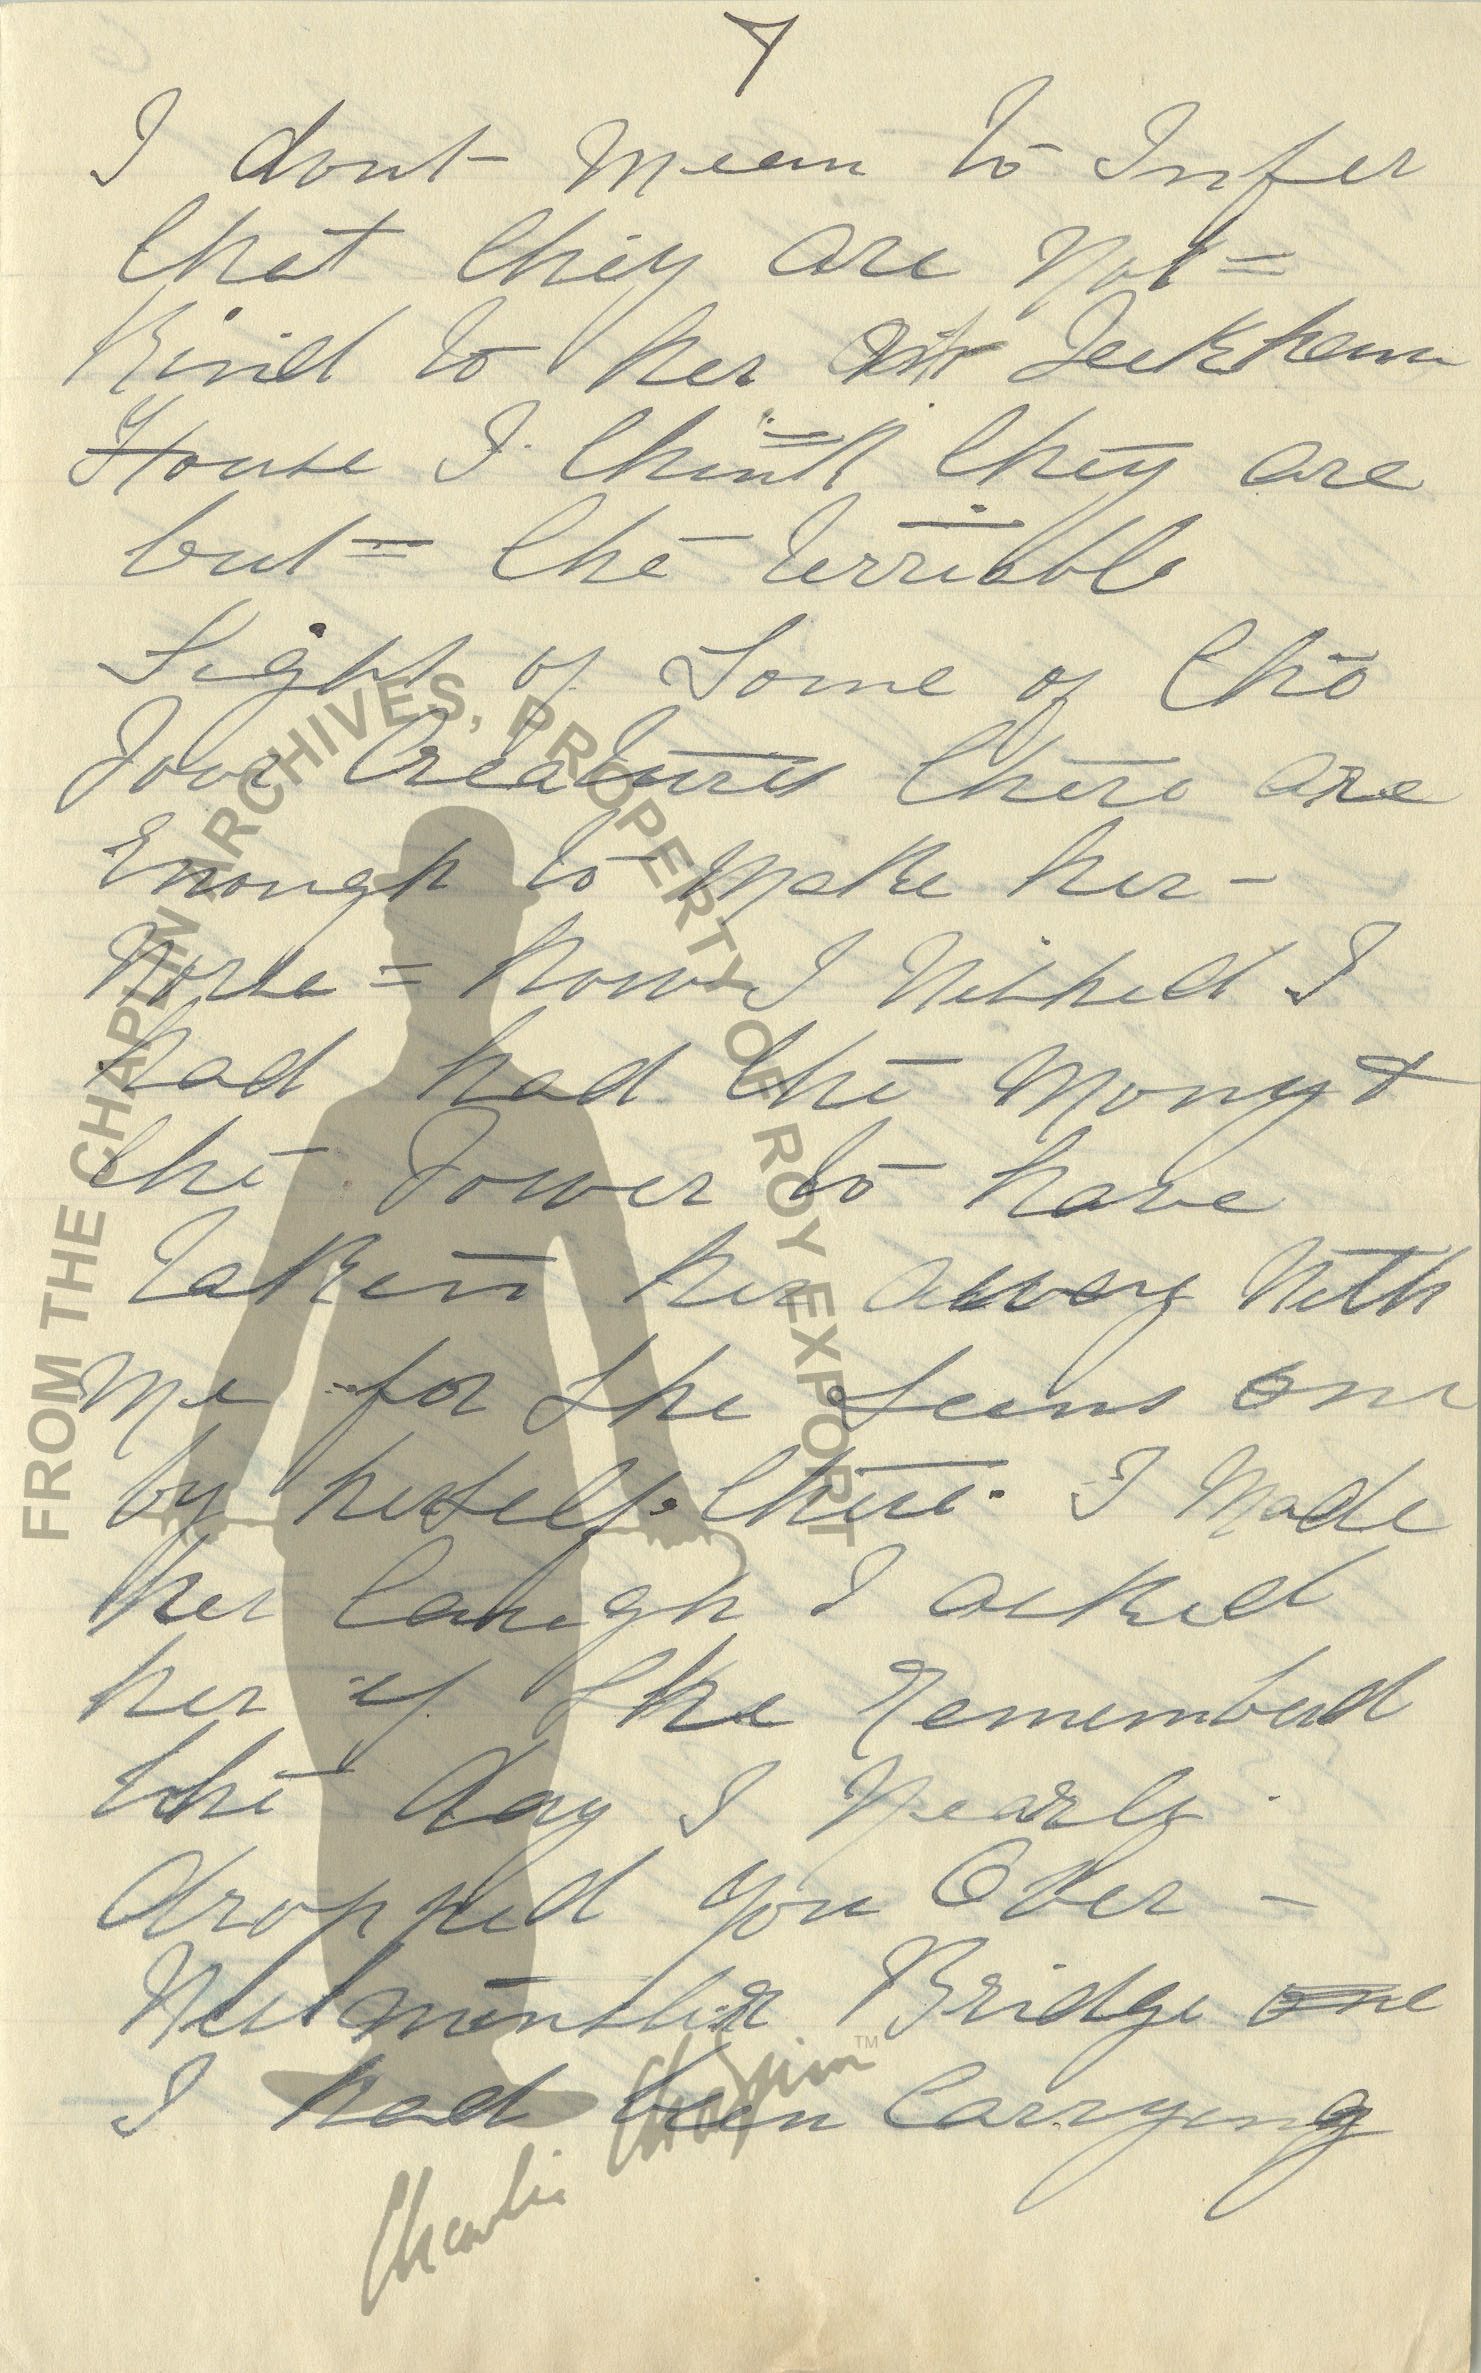 7
I dont mean to Infer
that they are not =
Kind to her at Peckham
House I think they are
but = the terrible
Sight of Some of the
Poor Creatures there are
Enough to make her -
Worse = how I Wished I
had had the Mony +
the Power to have
taken her away With
me for She Seems one
by herself. there. I Made
her laugh I asked
her if She Rememberd
the day I Nearly
dropped you Over -
Westminster Bridge one
I had been Carrying
FROM THE CHAPLIN ARCHIVES, PROPERTY OF ROY EXPORT
Charlie Chaplin™